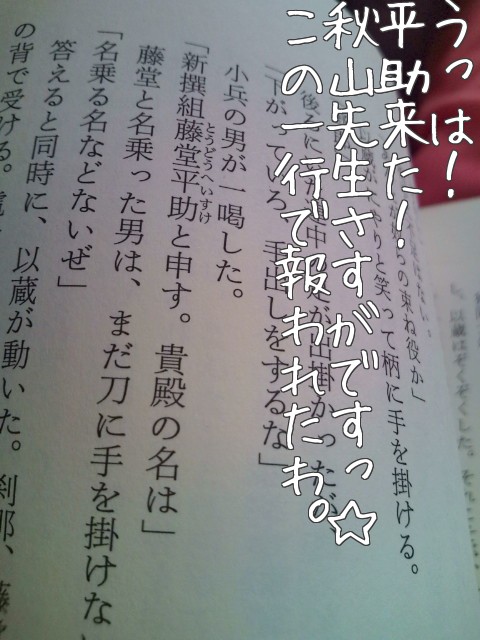 うっは！
平助来た！
秋山先生さすがですっ☆
この一行で報われたわ。
らの束ね役か」
りと笑って柄に手を掛ける。
「下がってろ、手出しをするな」
小兵の男が一喝した。
「新撰組藤堂平助と申す。貴殿の名は」
とうどうへいすけ
藤堂と名乗った男は、まだ刀に手を掛けな
「名乗る名などないぜ」
答えると同時に、以蔵が動いた。刹那、
の背で受ける。
以蔵はぞくぞくした。